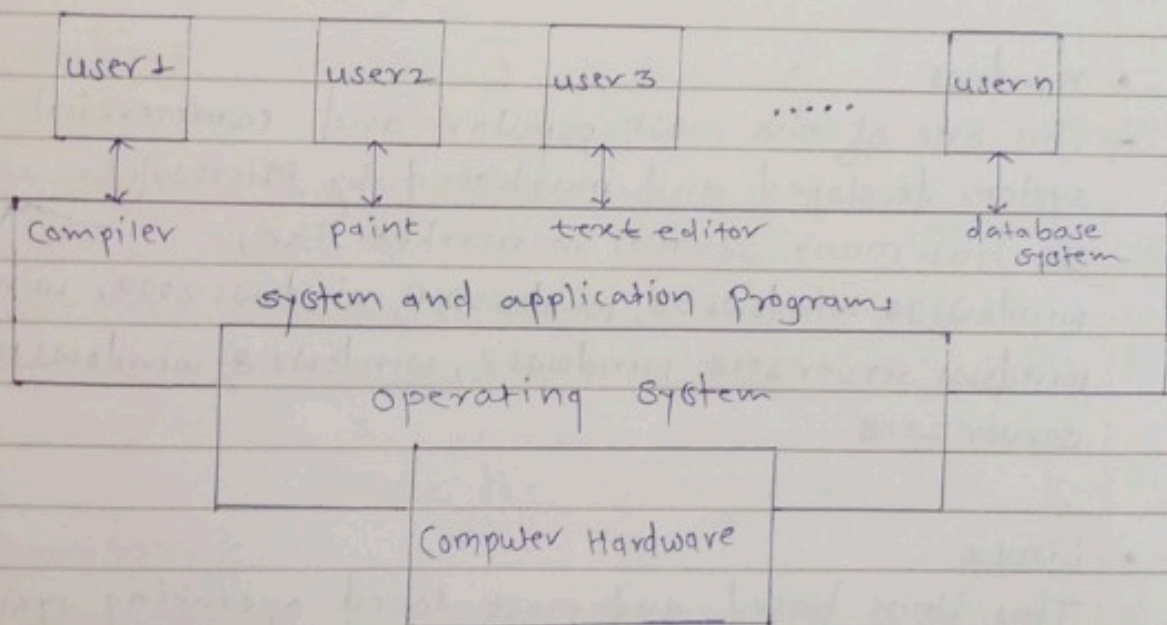 user1 user2 user3 ..... user n
Compiler paint text editor database
system
system and application programs
operating system
Computer Hardware